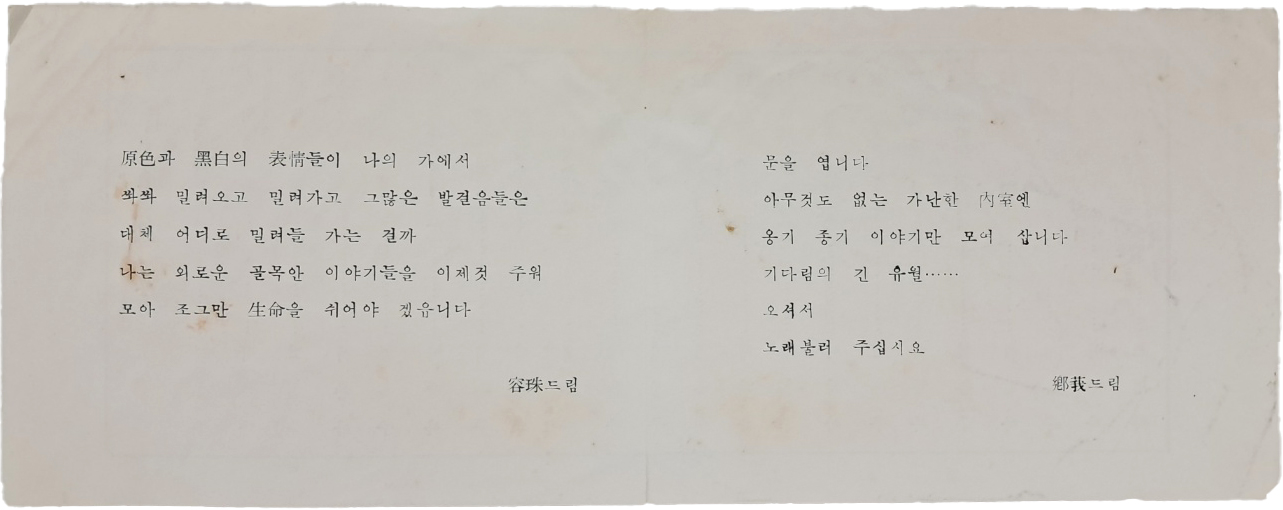 原色과 黑白의 表情들이 나의 가에서
쫙쫙 밀려오고 밀려가고 그많은 발걸음들은
대체 어디로 밀려들 가는 걸까
나는 외로운 골목안 이야기들을 이제것 주워
모아 조그만 生命을 쉬어야 겠읍니다
容珠드림
문을 엽니다
아무것도 없는 가난한 內室엔
옹기 종기 이야기만 모여 삽니다
기다림의 긴 유월……
오셔서
노래불러 주십시요
鄕莪드림